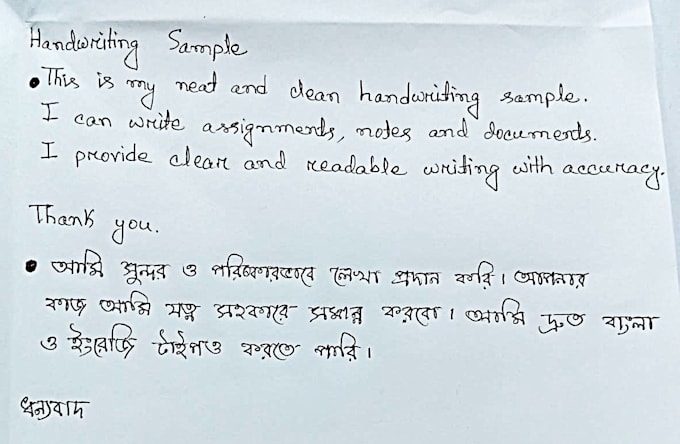 Handwriting Sample
• This is my neat and clean handwriting sample.
I can write assignments, notes and documents.
I provide clear and readable writing with accuracy.
Thank you.
• আমি সুন্দর ও পরিষ্কারভাবে লেখা প্রদান করি। আপনার
কাজ আমি যত্ন সহকারে সম্পন্ন করবো। আমি দ্রুত বাংলা
ও ইংরেজি টাইপও করতে পারি।
ধন্যবাদ